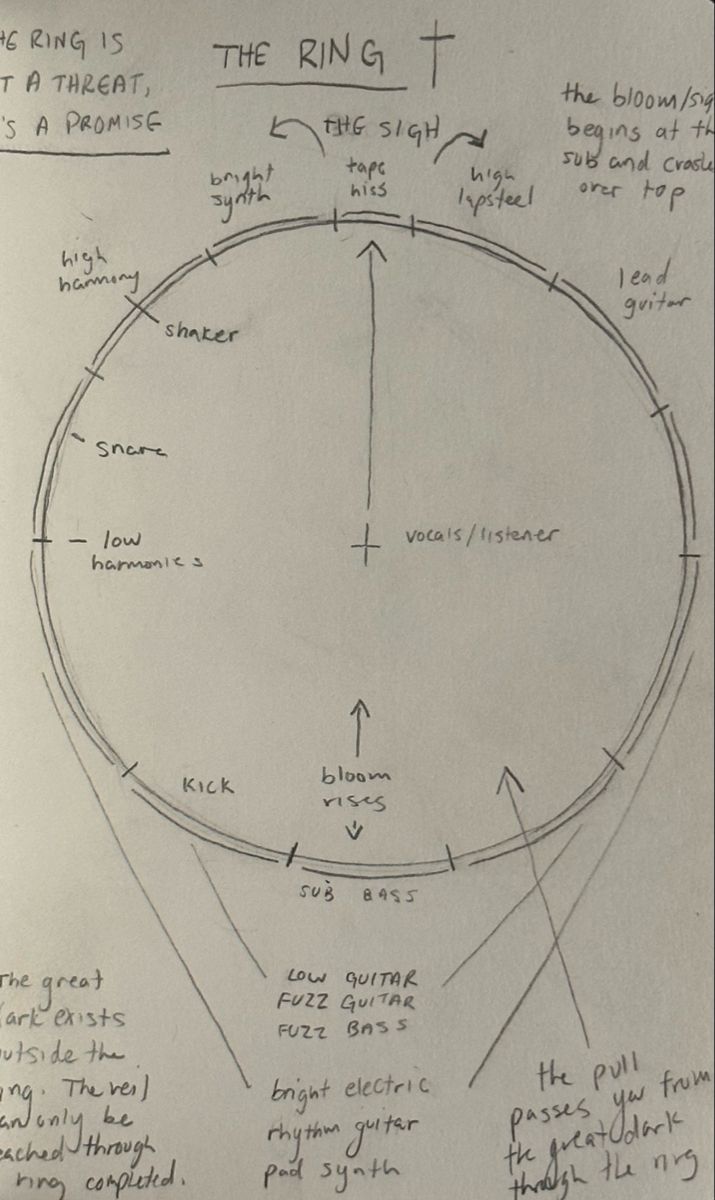 THE RING
HE RING IS
T A THREAT,
'S A PROMISE
the bloom/sig
begins at th
sub and crash
over top
THE SIGH
bright
synth
tape
hiss
high
lapsteel
high
harmony
lead
guitar
shaker
snare
low
harmonics
vocals/listener
KICK
bloom
rises
SUB BASS
LOW GUITAR
FUZZ GUITAR
FUZZ BASS
The great
ark exists
utside the
ng. The veil
an only be
eached through
ring completed.
bright electric
rhythm guitar
pad synth
the pull
passes you from
the great dark
through the ring